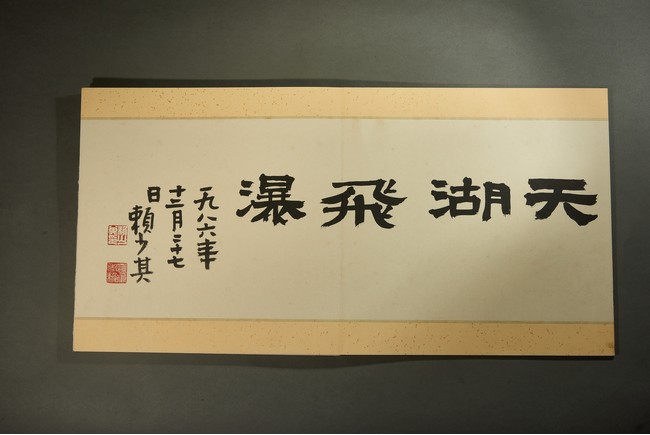 天湖飛瀑
一九八六年
十二月二十七
日賴少其